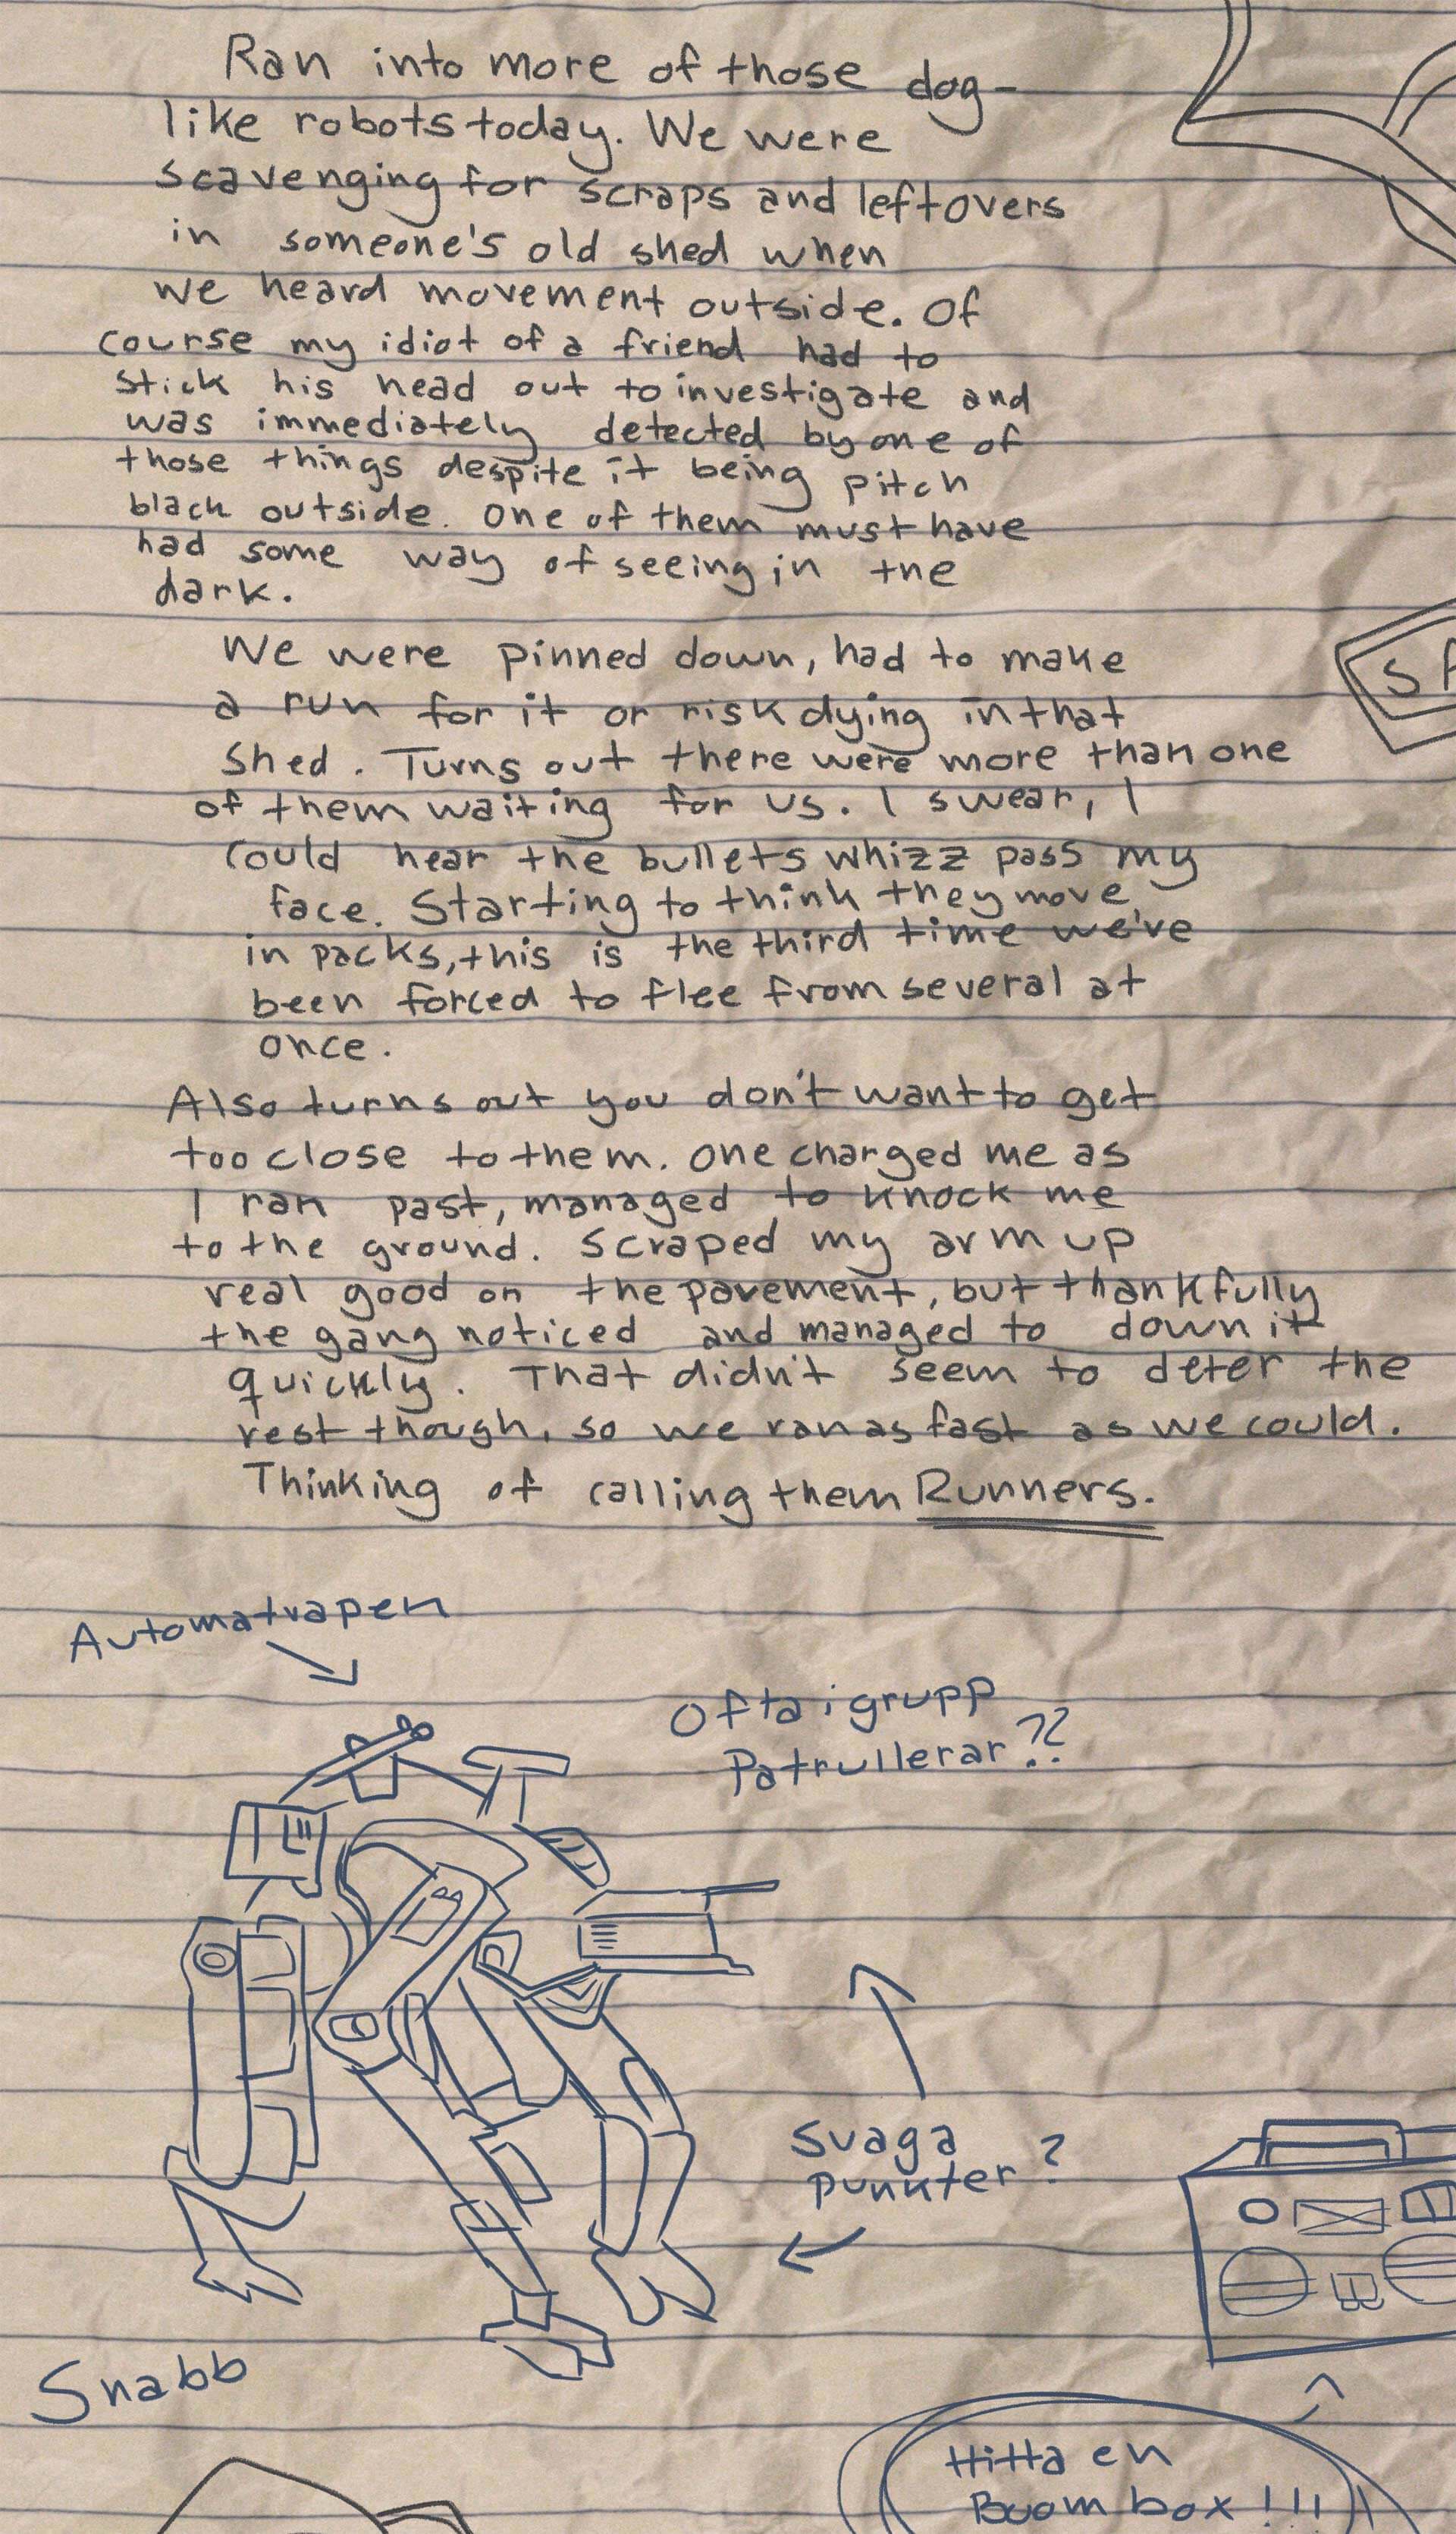 Ran into more of those dog-
like robots today. We were
scavenging for scraps and leftovers
in someone's old shed when
we heard movement outside. Of
course my idiot of a friend had to
stick his head out to investigate and
was immediately detected by one of
those things despite it being pitch
black outside. One of them must have
had some way of seeing in the
dark.
We were pinned down, had to make
a run for it or risk dying in that
shed. Turns out there were more than one
of them waiting for us. I swear, I
could hear the bullets whizz pass my
face. Starting to think they move
in packs, this is the third time we've
been forced to flee from several at
once.
Also turns out you don't want to get
too close to them. One charged me as
I ran past, managed to knock me
to the ground. Scraped my arm up
real good on the pavement, but thankfully
the gang noticed and managed to down it
quickly. That didn't seem to deter the
rest though, so we ran as fast as we could.
Thinking of calling them Runners.
Automatvapen
Ofta i grupp
Patrullerar??
Svaga
punkter?
Snabb
Hitta en
Boom box!!!